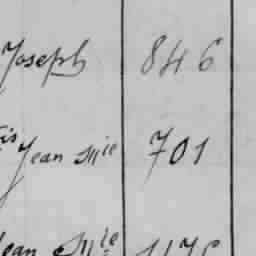 Joseph 846
is Jean Mie 701
Jean Mie